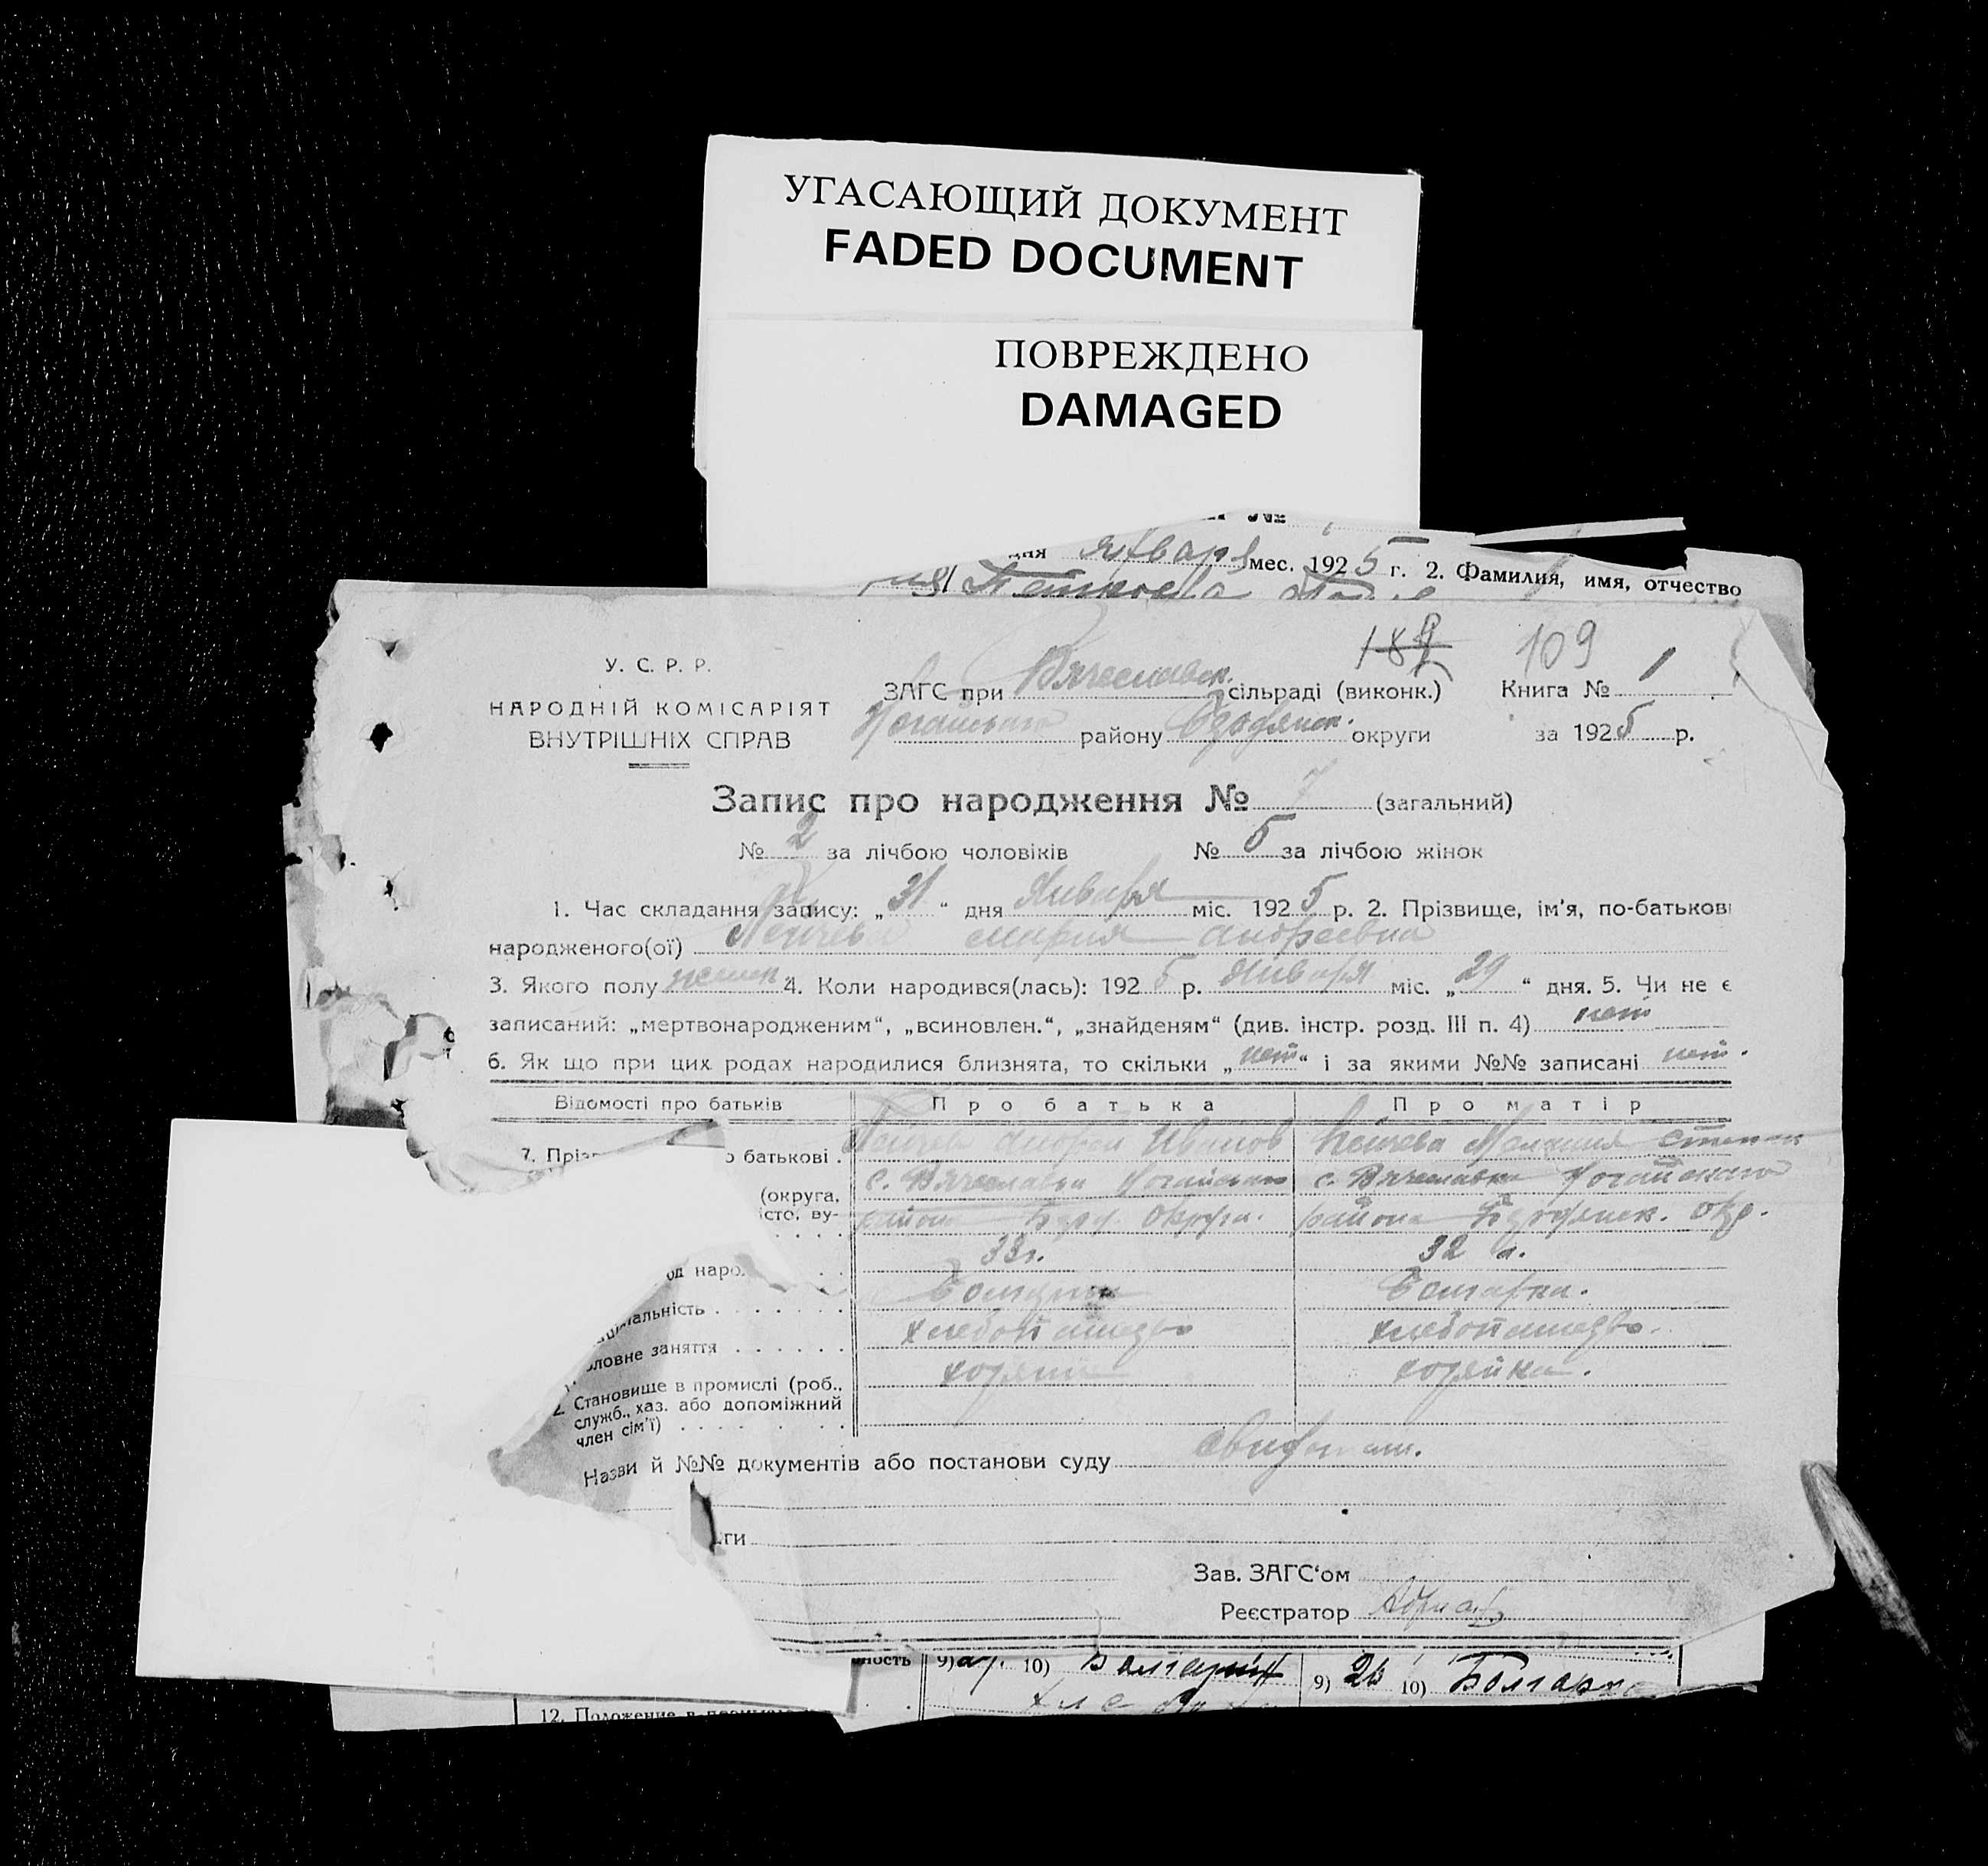 УГАСАЮЩИЙ ДОКУМЕНТ
FADED DOCUMENT
ПОВРЕЖДЕНО
DAMAGED
№
дня Января мес. 1925 г. 2. Фамилия, имя, отчество
109
У. С. Р. Р.
ЗАГС при Вячеславск. сільраді (виконк.) Книга № 1
НАРОДНІЙ КОМІСАРІЯТ
ВНУТРІШНІХ СПРАВ
Ногайського району Бердянск. округи за 1925 р.
Запис про народження № 7 (загальний)
№ 2 за лічбою чоловіків № 5 за лічбою жінок
1. Час складання запису: „31“ дня Января міс. 1925 р. 2. Прізвище, ім’я, по-батькові
народженого(ої) Мария Андреевна
3. Якого полу женск 4. Коли народився(лась): 1925 р. Января міс. „29“ дня. 5. Чи не є
записаний: „мертвонародженим“, „всиновлен.“, „знайденям“ (див. інстр. розд. III п. 4) нет
6. Як що при цих родах народилися близнята, то скільки „нет“ і за якими №№ записані нет.
Відомості про батьків Про батька Про матір
7. Пріз о батькові . Андрей Иванов
(округа, с. Вячеславка Ногайского с. Вячеславка Ногайского
істо, ву- района Берд. округи. района Бердянск. окр.
од наро. 33 г. 32 г.
альність Болгарин Болгарка.
ловне заняття хлебопашество хлебопашество.
Становище в промислі (роб., хозяин хозяйка.
служб., хаз. або допоміжний
член сім’ї)
Назви й №№ документів або постанови суду
ги
Зав. ЗАГС‘ом
Реєстратор
ность 9) 10) Болгарин 9) 26 10) Болгарка
12. Положение в